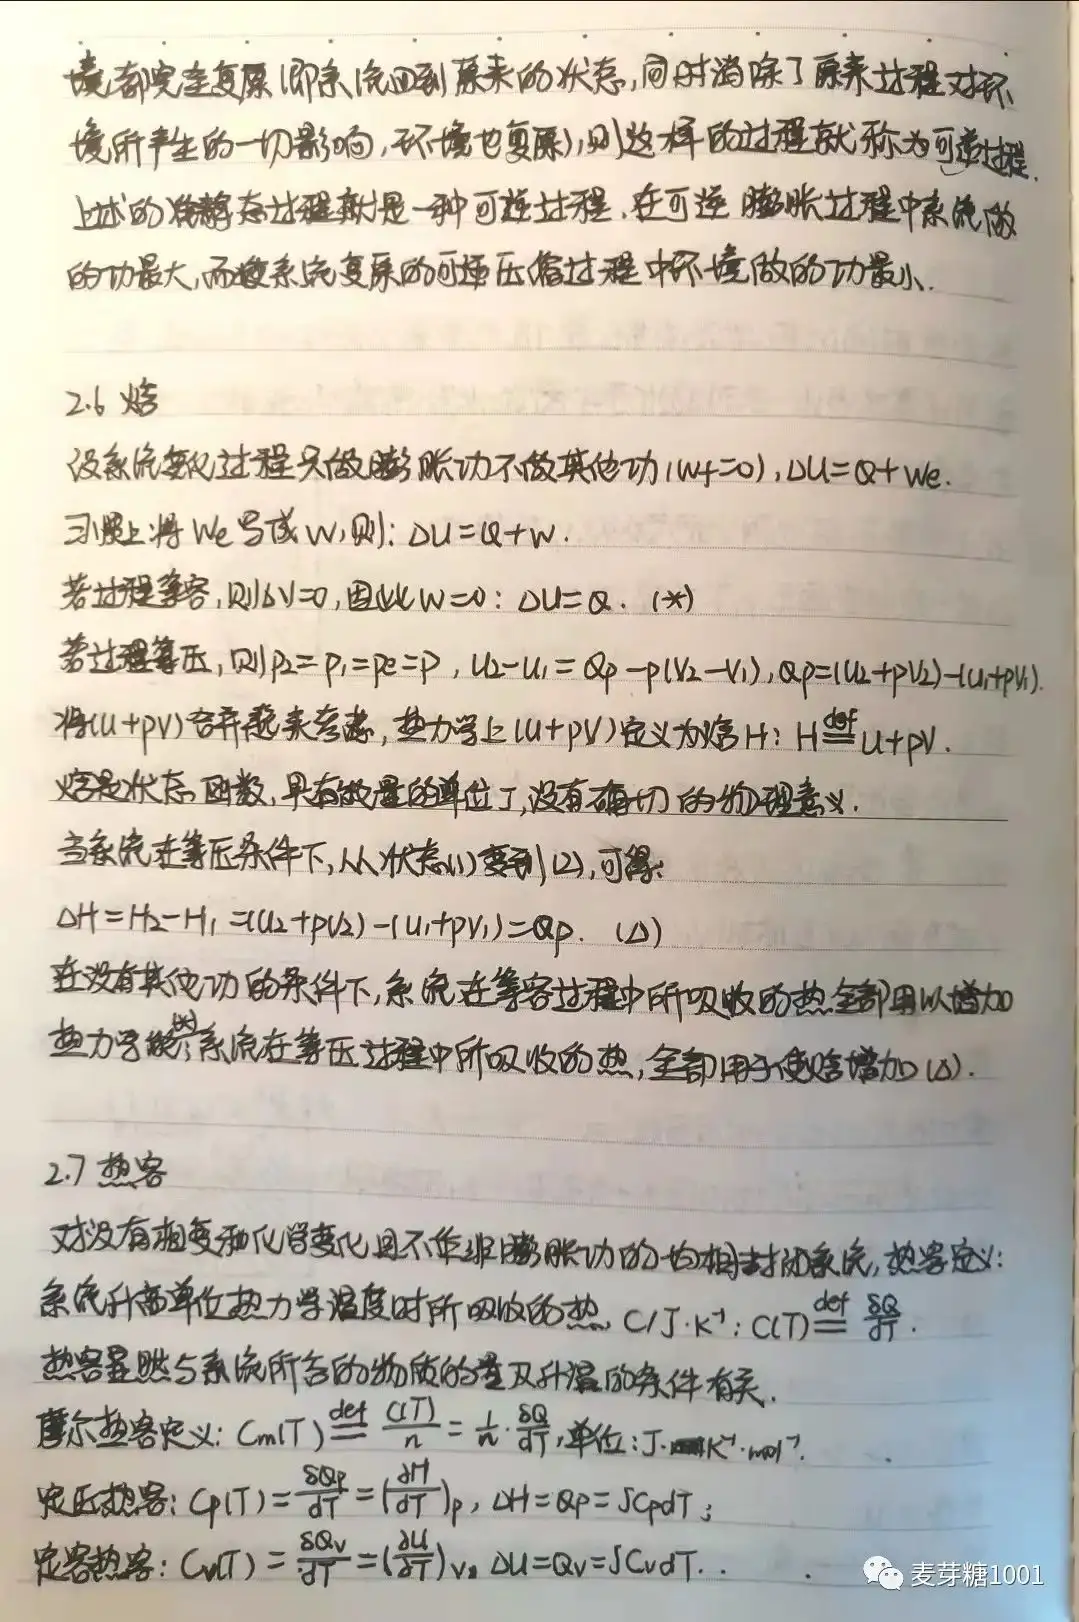 境都完全复原(即系统回到原来的状态,同时消除了原来过程对环
境所产生的一切影响,环境也复原),则这样的过程就称为可逆过程.
上述的准静态过程就是一种可逆过程.在可逆膨胀过程中系统做
的功最大,而使系统复原的可逆压缩过程中环境做的功最小.
2.6 焓
设系统变化过程只做膨胀功不做其他功(Wf=0),ΔU=Q+We.
习惯上将We写成W,则:ΔU=Q+W.
若过程等容,则ΔV=0,因此W=0:ΔU=Q. (*)
若过程等压,则p2=p1=pe=p,U2-U1=Qp-p(V2-V1),Qp=(U2+pV2)-(U1+pV1).
将(U+pV)合并起来考虑,热力学上(U+pV)定义为焓H:H≝U+pV.
焓是状态函数,具有能量的单位J,没有确切的物理意义.
当系统在等压条件下,从状态(1)变到(2),可得:
ΔH=H2-H1=(U2+pV2)-(U1+pV1)=Qp. (Δ)
在没有其他功的条件下,系统在等容过程中所吸收的热全部用以增加
热力学能(*);系统在等压过程中所吸收的热,全部用于使焓增加(Δ).
2.7 热容
对没有相变和化学变化且不作非膨胀功的均相封闭系统,热容定义:
系统升高单位热力学温度时所吸收的热. C/J·K⁻¹:C(T)≝δQ/dT.
热容显然与系统所含的物质的量及升温的条件有关.
摩尔热容定义:Cm(T)≝C(T)/n=1/n·δQ/dT,单位:J·K⁻¹·mol⁻¹.
定压热容:Cp(T)=δQp/dT=(∂H/∂T)p,ΔH=Qp=∫CpdT;
定容热容:Cv(T)=δQv/dT=(∂U/∂T)v,ΔU=Qv=∫CvdT.
麦芽糖1001